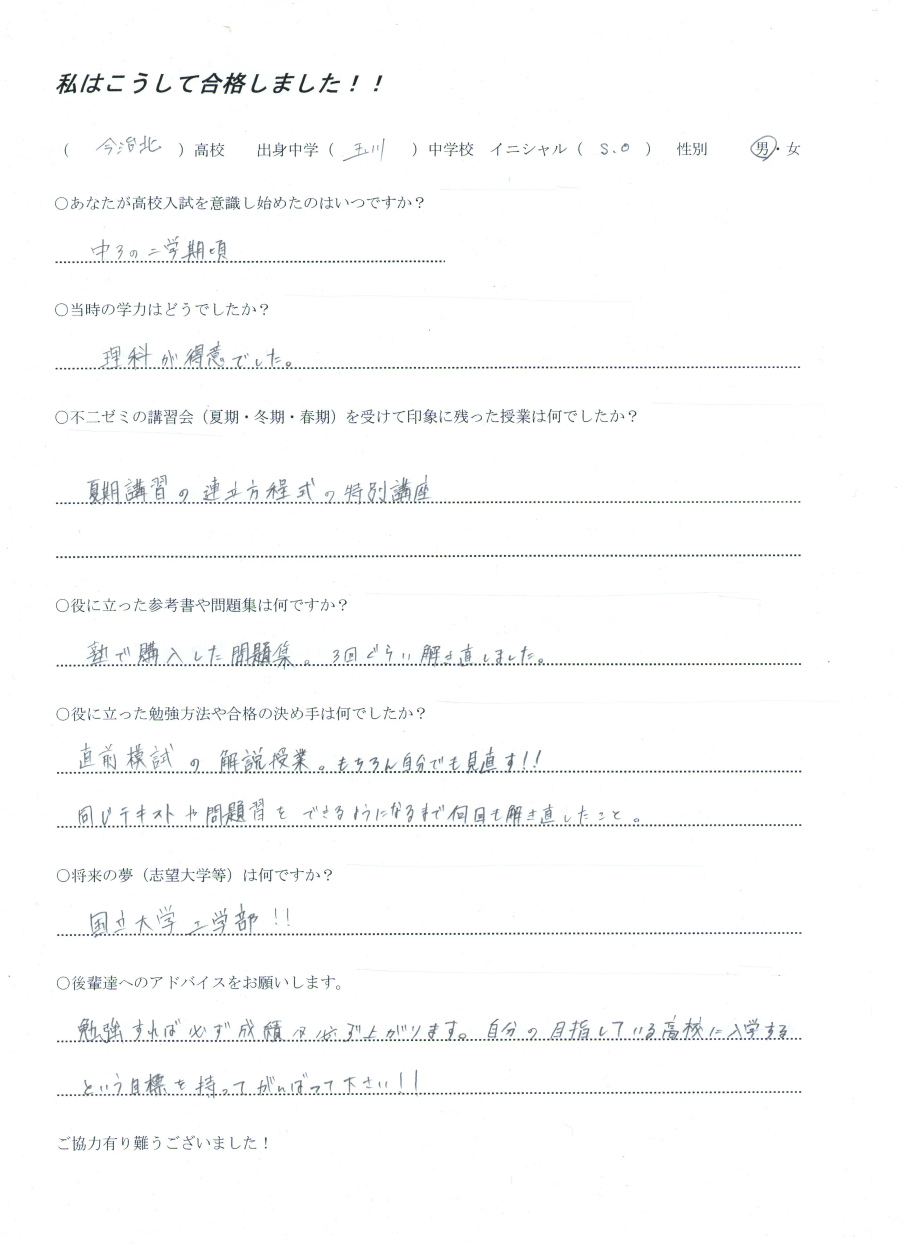 私はこうして合格しました！！
（ 今治北 ）高校 出身中学（ 玉川 ）中学校 イニシャル（ S.O ） 性別 男・女
○あなたが高校入試を意識し始めたのはいつですか？
中3の二学期頃
○当時の学力はどうでしたか？
理科が得意でした。
○不二ゼミの講習会（夏期・冬期・春期）を受けて印象に残った授業は何でしたか？
夏期講習の連立方程式の特別講座
○役に立った参考書や問題集は何ですか？
塾で購入した問題集。3回ぐらい解き直しました。
○役に立った勉強方法や合格の決め手は何でしたか？
直前模試の解説授業。もちろん自分でも見直す!!
同じテキストや問題習をできるようになるまで何回も解き直したこと。
○将来の夢（志望大学等）は何ですか？
国立大学工学部!!
○後輩達へのアドバイスをお願いします。
勉強すれば必ず成績は必ず上がります。自分の目指している高校に入学する
という目標を持ってがんばって下さい!!
ご協力有り難うございました！